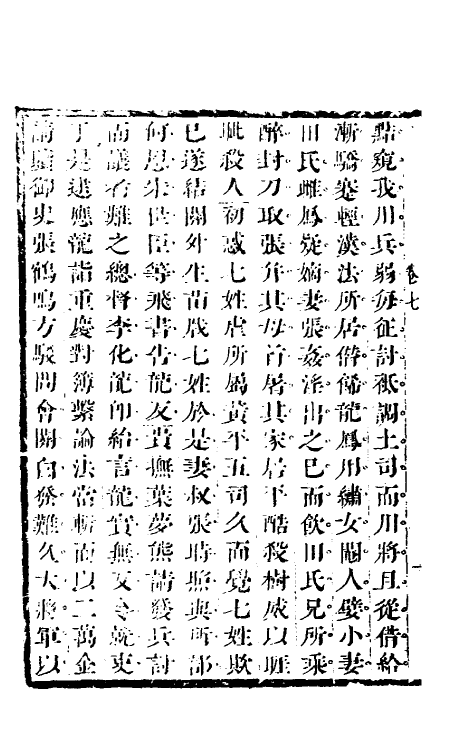 點窺我川兵弱每征討祗調土司而川將且從借給
漸驕蹇輕漢法所居僭飾龍鳳用繡女閹人嬖小妻
田氏雌鳳疑嫡妻張姦淫出之已而飲田氏兄所乘
醉封刀取張并其母首屠其家居平酷殺樹威以睚
眦殺人初惑七姓虐所屬黃平五司久而覺七姓欺
已遂結關外生苗戕七姓於是妻叔張時照與所部
何恩宋世臣等飛書告龍反貴撫葉夢熊請發兵討
而議者難之總督李化龍即給言龍實無反令就吏
于是逮應龍詣重慶對簿縈論法當斬而以二萬金
請贖御史張鶴鳴方駁問會關白發難久大將軍以
卷七